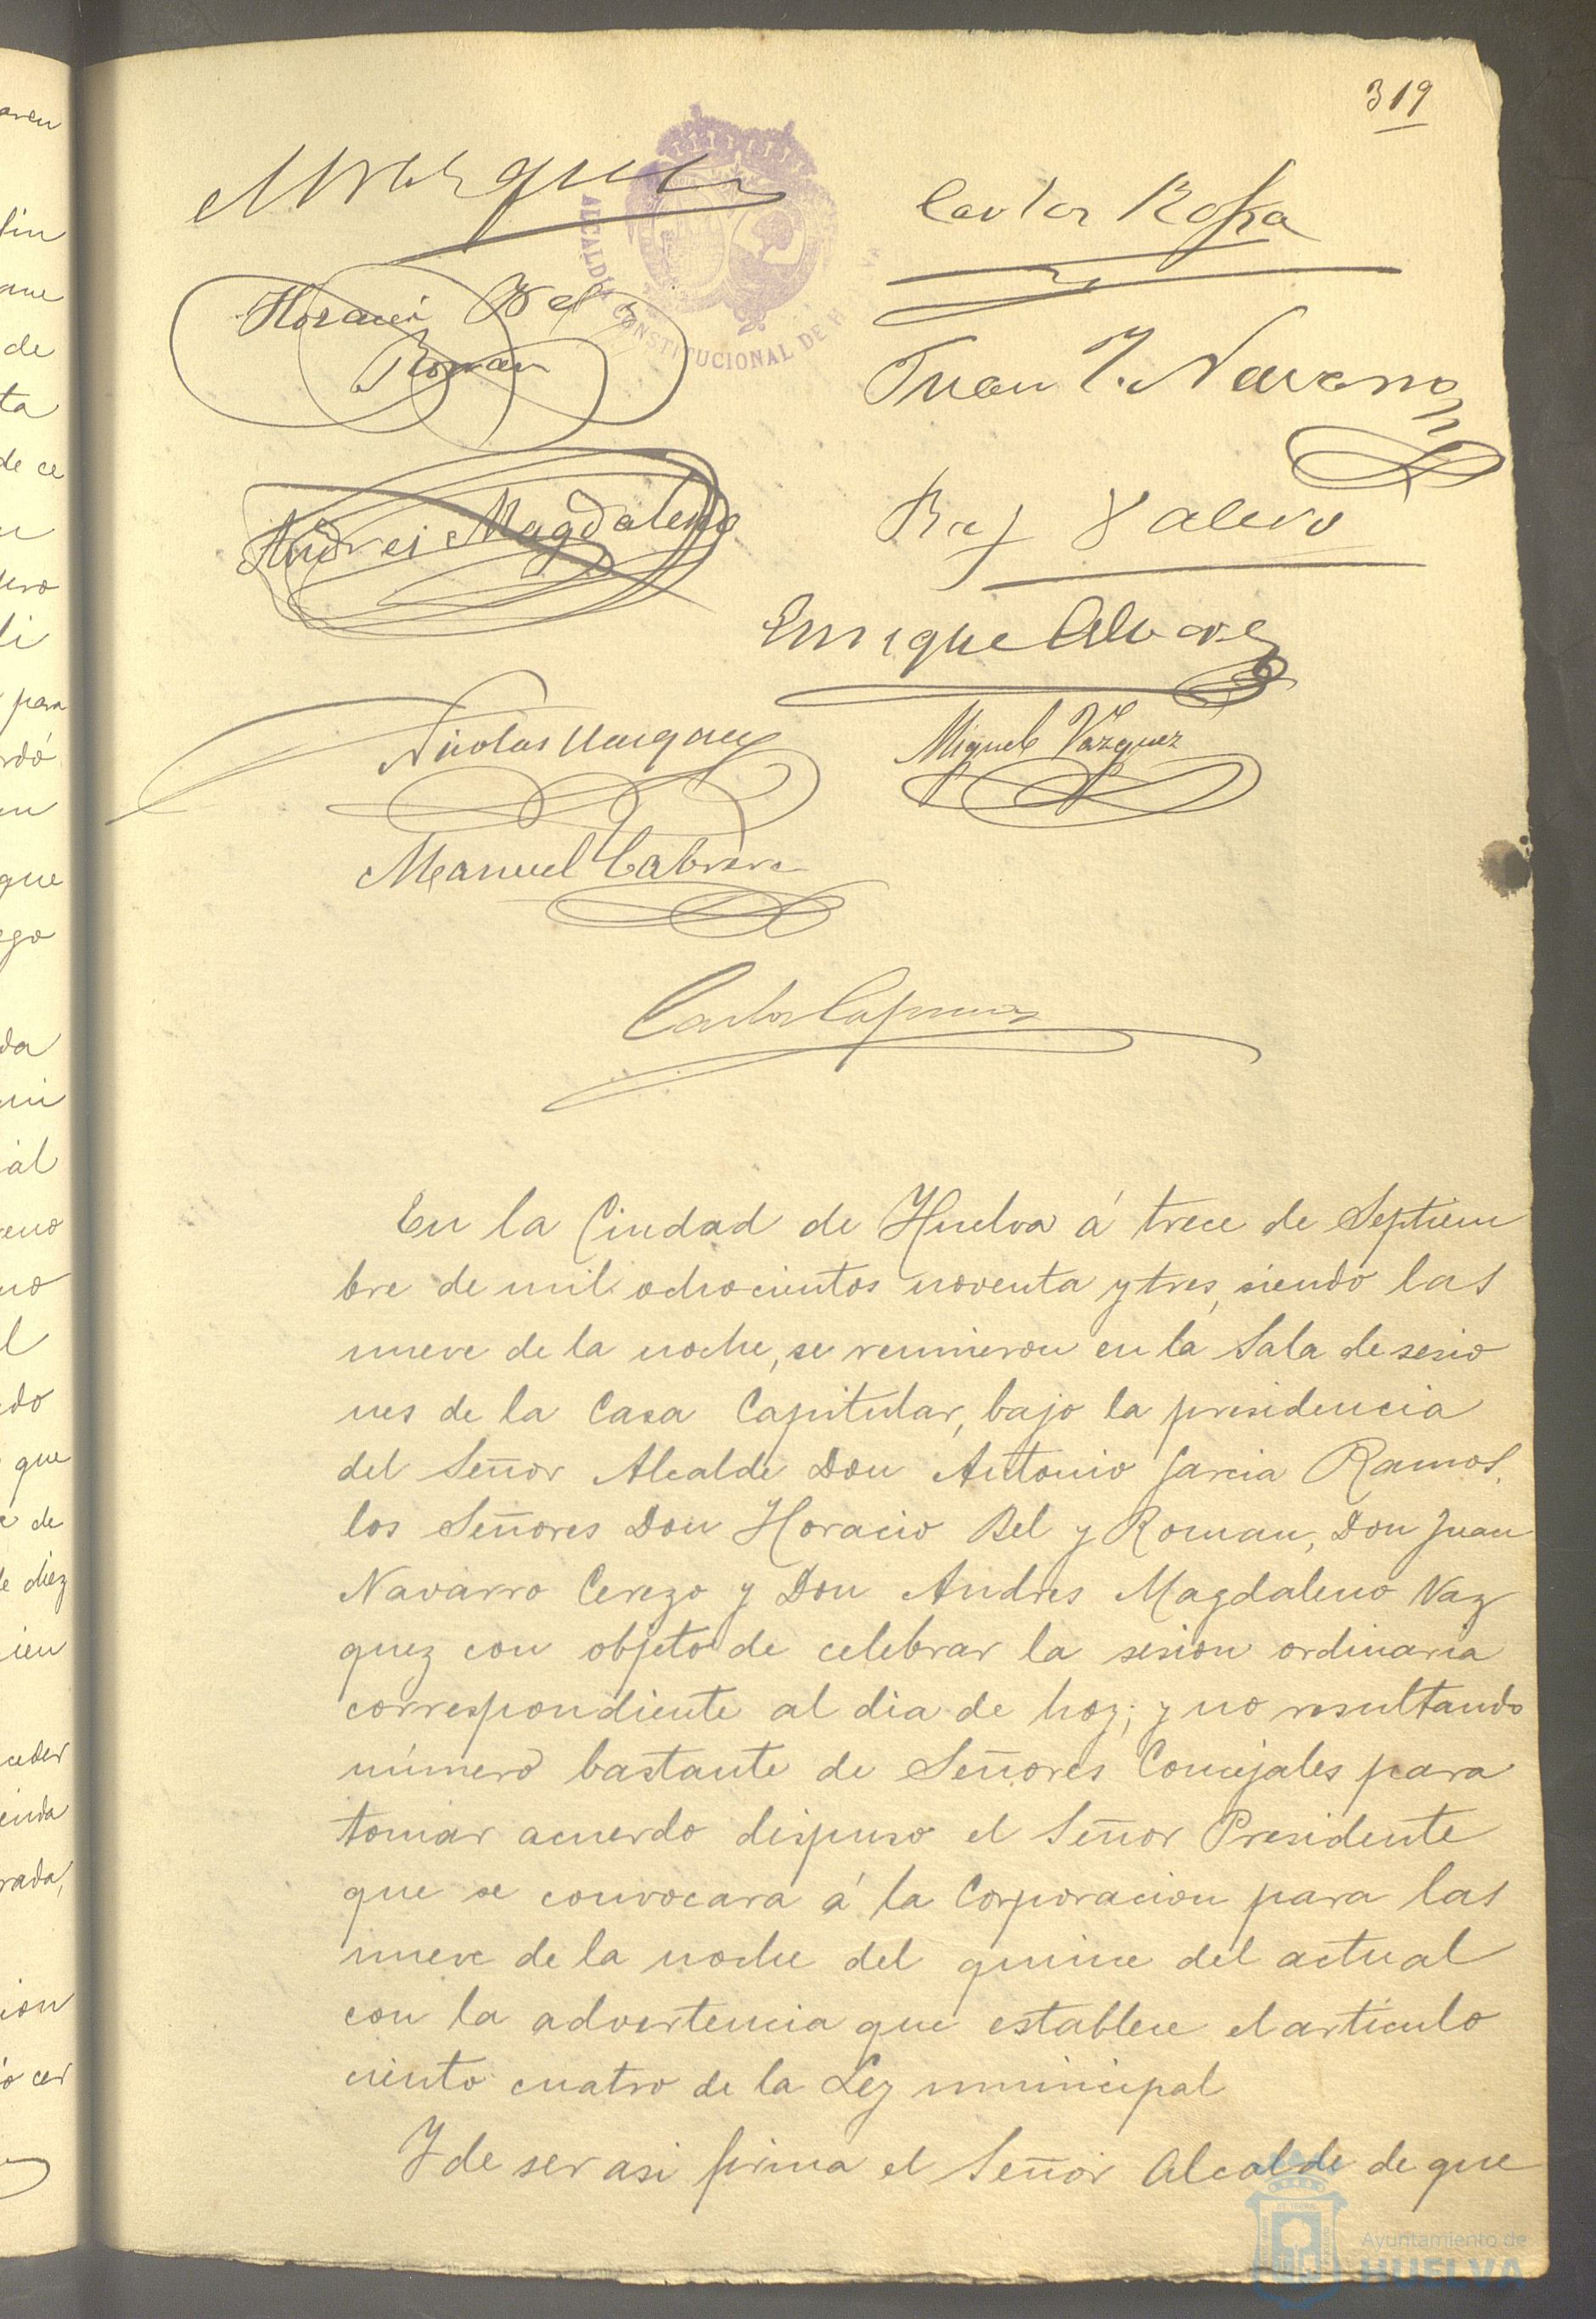 319
Carlos
Horacio Bel y
Roman
Juan J. Navarro
Andrés Magdaleno
Raf Valero
Enrique Alvarez
Nicolas Vazquez
Miguel Vázquez
Manuel Cabrera
Carlos
ALCALDÍA CONSTITUCIONAL DE H
En la Ciudad de Huelva á trece de Septiem
bre de mil ochocientos noventa y tres, siendo las
nueve de la noche, se reunieron en la Sala de sesio
nes de la Casa Capitular, bajo la presidencia
del Señor Alcalde Don Antonio Garcia Ramos,
los Señores Don Horacio Bel y Roman, Don Juan
Navarro Cerezo y Don Andres Magdaleno Vaz
quez con objeto de celebrar la sesion ordinaria
correspondiente al dia de hoy; y no resultando
número bastante de Señores Concejales para
tomar acuerdo dispuso el Señor Presidente
que se convocara á la Corporacion para las
nueve de la noche del quince del actual
con la advertencia que establece el artículo
ciento cuatro de la Ley municipal
Y de ser asi firma el Señor Alcalde de que
Ayuntamiento de
HUELVA